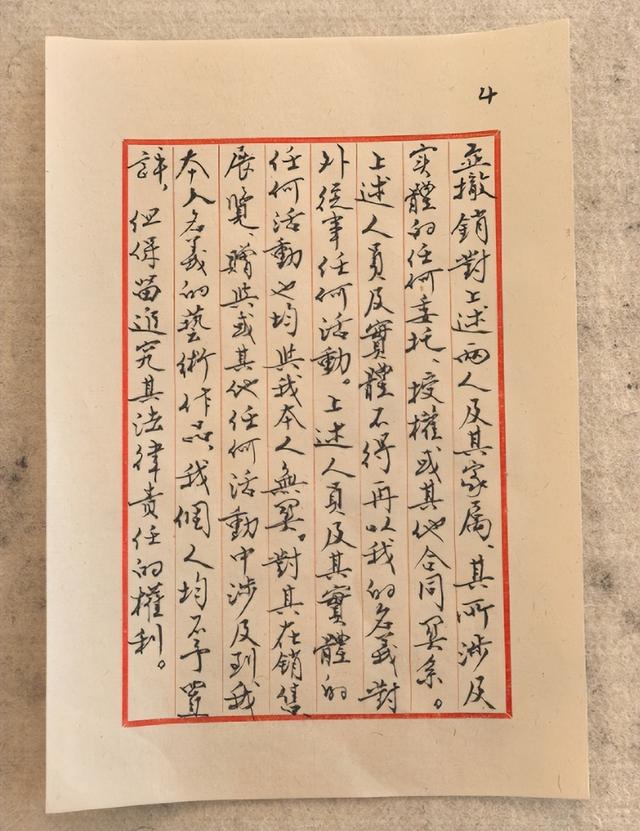 4
并撤銷對上述兩人及其家属、其所涉及
实體的任何委托、授權或其他合同関系。
上述人員及實體不得再以我的名義對
外從事任何活動。上述人員及其實體的
任何活動也均與我本人無関。對其在銷售、
展覽、贈與或其他任何活動中涉及到我
本人名義的藝術作品,我個人均不予置
評,但保留追究其法律責任的權利。